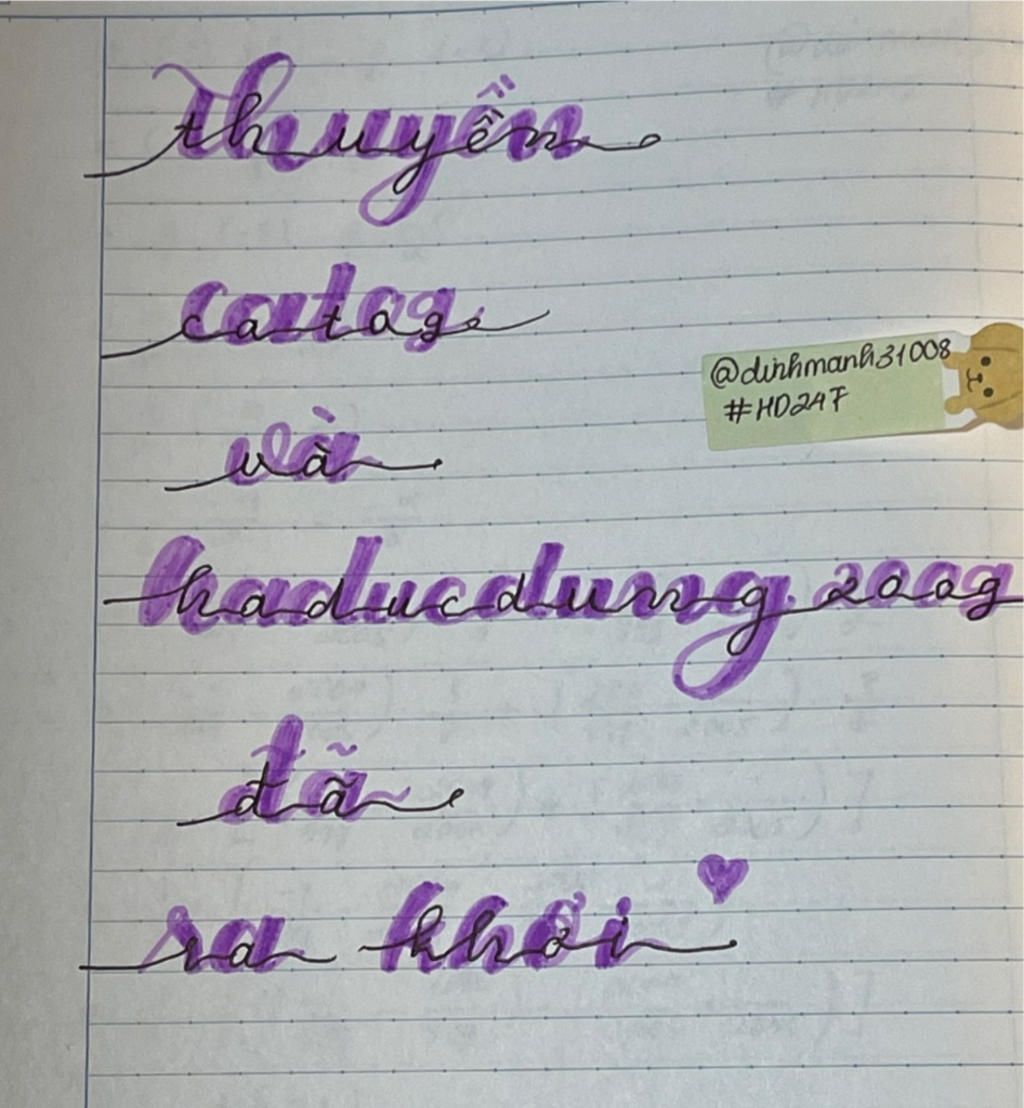 Thuyền
catag
và
haducdung.2009
đã
ra khơi
@dinhmanh31008
#HD247